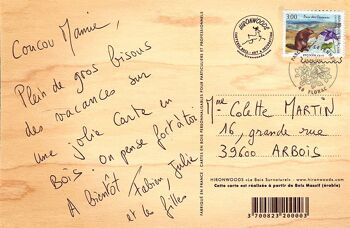 Coucou Mamie,
Plein de gros bisous
des vacances sur
une jolie carte en
Bois. on pense fort à toi
A bientôt Fabien, Julie
et les filles
HIRONWOODS
3,00
Parc des Cévennes
48 FLORAC
Mme Colette MARTIN
16, grande rue
39600 ARBOIS
HIRONWOODS «Le Bois Surnaturel» www.hironwoods.com
Cette carte est réalisée à partir de Bois Massif (érable)
3 700823 200003